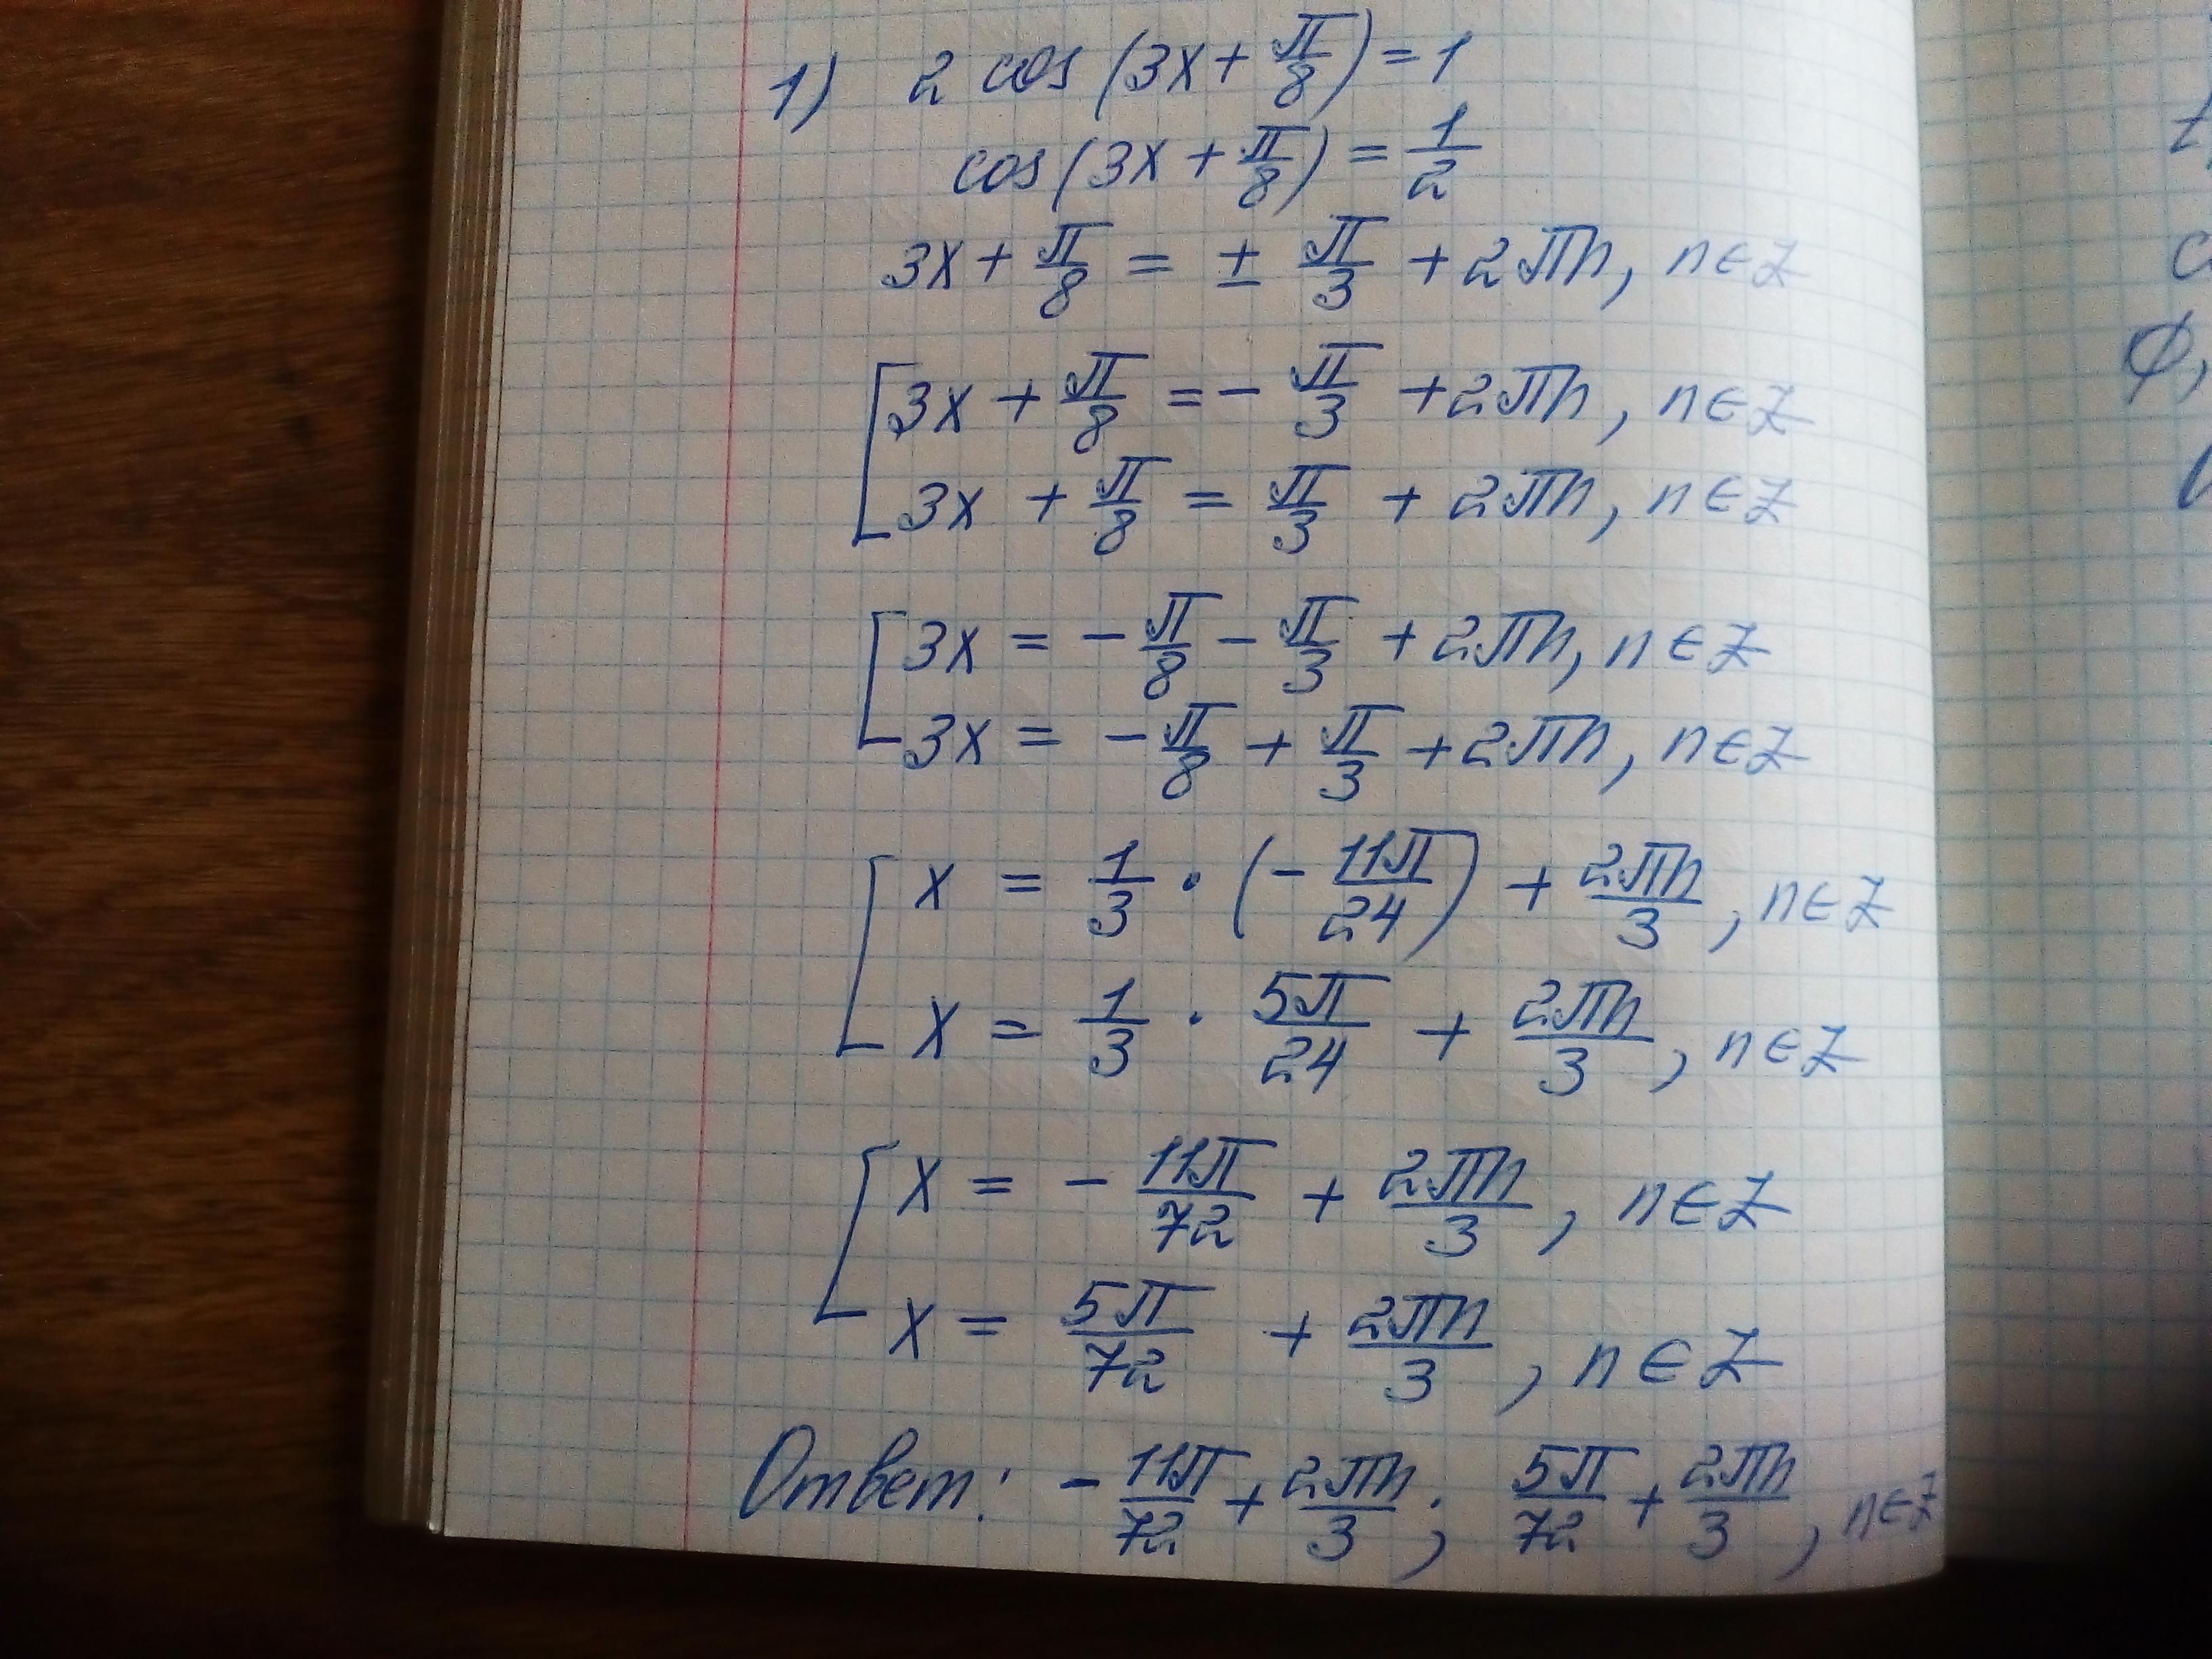 1) 2 cos (3x + π/8) = 1
cos (3x + π/8) = 1/2
3x + π/8 = ± π/3 + 2πn, n ∈ Z
[ 3x + π/8 = - π/3 + 2πn, n ∈ Z
3x + π/8 = π/3 + 2πn, n ∈ Z
[ 3x = - π/8 - π/3 + 2πn, n ∈ Z
3x = - π/8 + π/3 + 2πn, n ∈ Z
[ x = 1/3 · (- 11π/24) + 2πn/3, n ∈ Z
x = 1/3 · 5π/24 + 2πn/3, n ∈ Z
[ x = - 11π/72 + 2πn/3, n ∈ Z
x = 5π/72 + 2πn/3, n ∈ Z
Ответ: - 11π/72 + 2πn/3; 5π/72 + 2πn/3, n ∈ Z